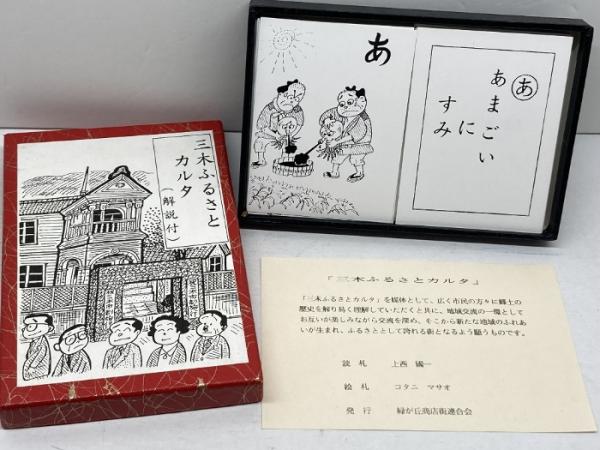 三木ふるさと
カルタ
(解説付)
あ
あ
あまごい
に
すみ
「三木ふるさとカルタ」
「三木ふるさとカルタ」を媒体として、広く市民の方々に郷土の
歴史を解り易く理解していただくと共に、地域交流の一環として
お互いが楽しみながら交流を深め、そこから新たな地域のふれあ
いが生まれ、ふるさととして誇れる街となるよう願うものです。
読札 上西 一
絵札 コタニ マサオ
発行 緑が丘商店街連合会